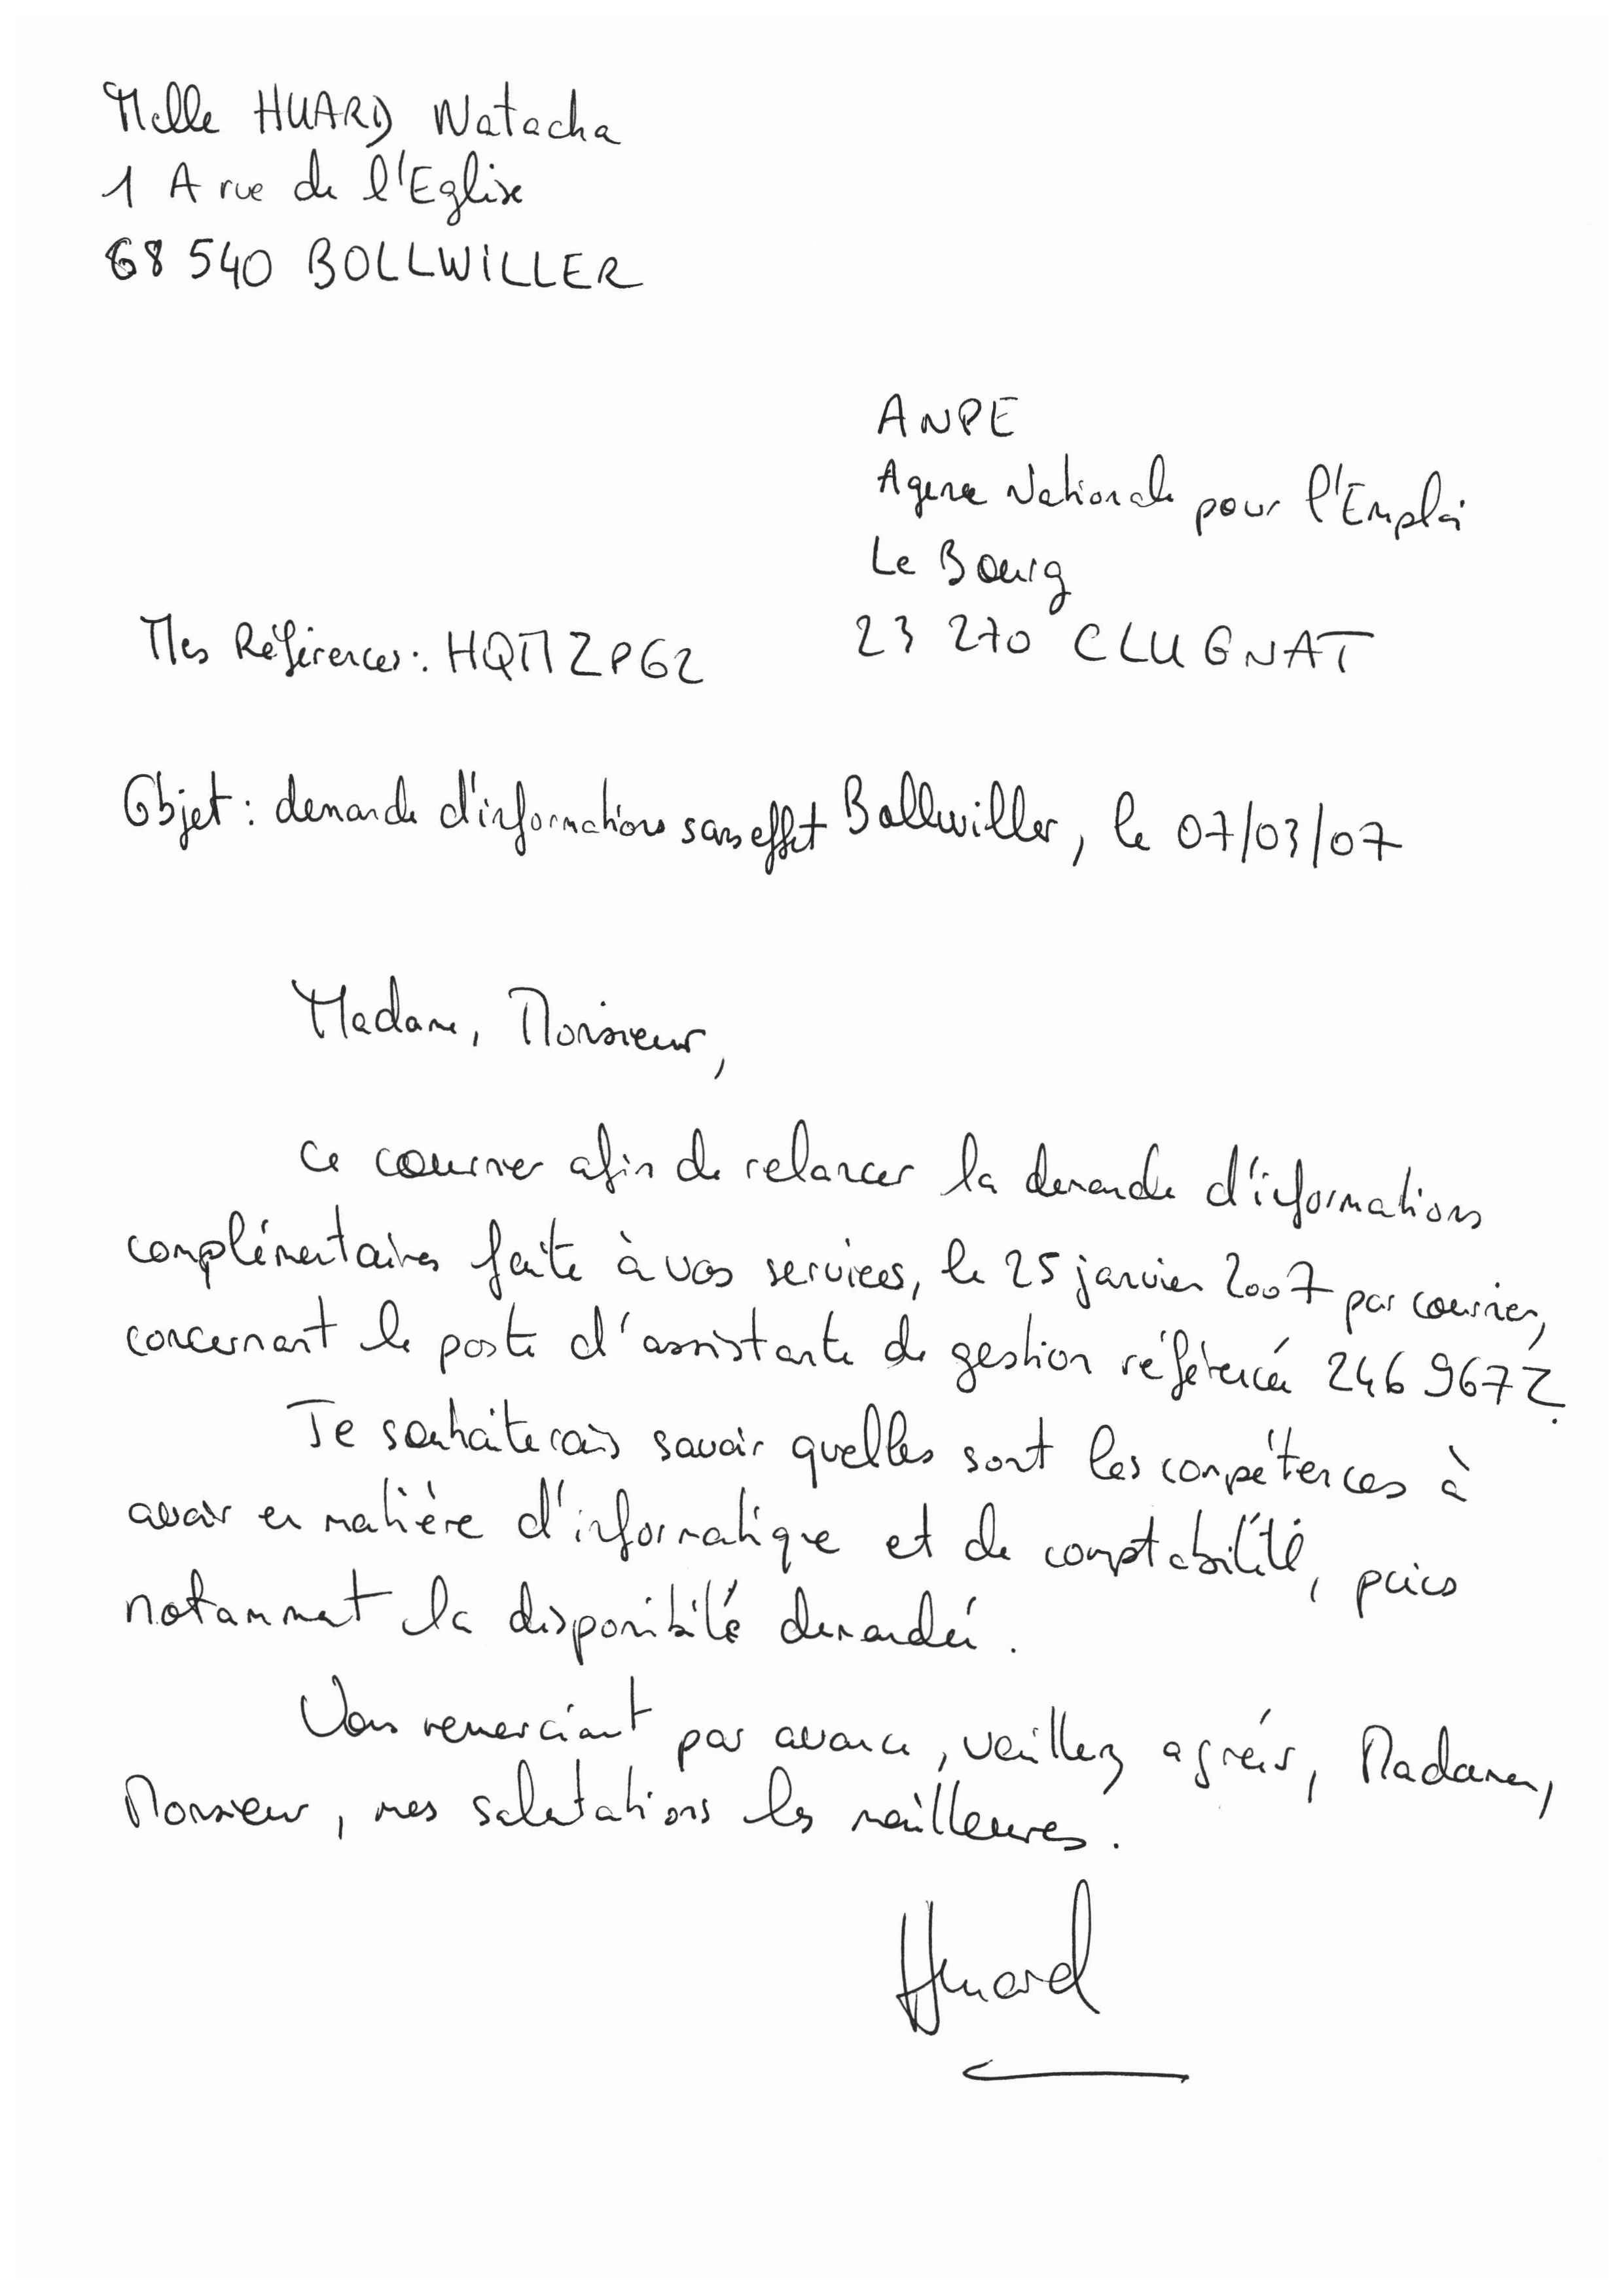 Melle HUARD Natacha
1 A rue de l'Eglise
68 540 BOLLWiLLER
ANPE
Agence Nationale pour l'Emploi
Le Bourg
23 270 CLUGNAT
Mes Références : HQMZP62
Objet : demande d'informations sans effet
Bollwiller, le 07/03/07
Madame, Monsieur,
Ce courrier afin de relancer la demande d'informations
complémentaires faite à vos services, le 25 janvier 2007 par courrier,
concernant le poste d'assistante de gestion référencé 246 967Z.
Je souhaiterais savoir quelles sont les compétences à
avoir en matière d'informatique et de comptabilité, puis
notamment la disponibilé demandée.
Vous remerciant par avance, veuillez agréer, Madame,
Monsieur, mes salutations les meilleures.
Huard